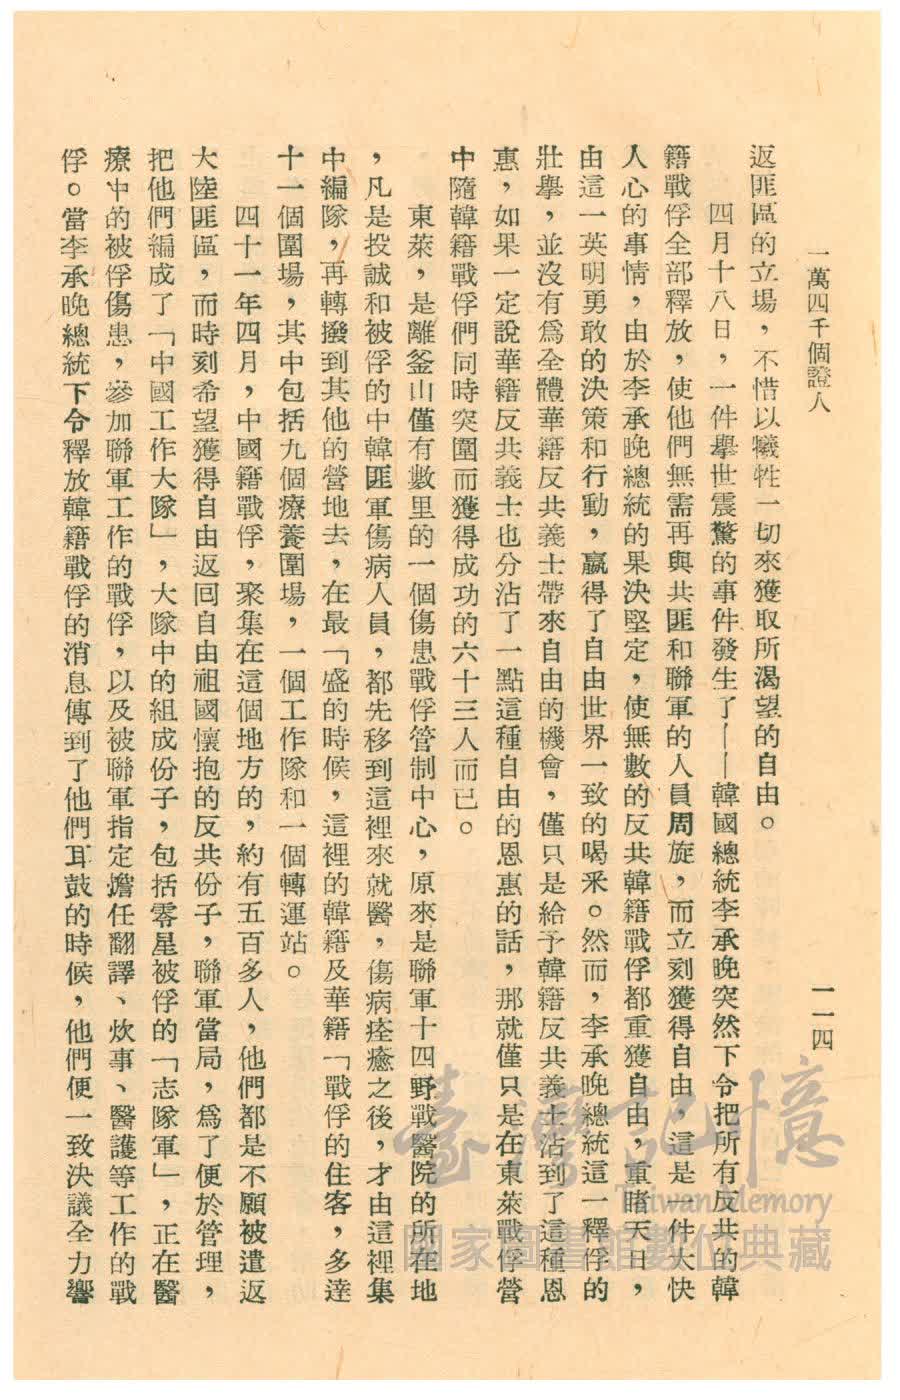 一萬四千個證人
一一四
返匪區的立場，不惜以犧牲一切來獲取所渴望的自由。
四月十八日，一件舉世震驚的事件發生了——韓國總統李承晚突然下令把所有反共的韓
籍戰俘全部釋放，使他們無需再與共匪和聯軍的人員周旋，而立刻獲得自由，這是一件大快
人心的事情，由於李承晚總統的果決堅定，使無數的反共韓籍戰俘都重獲自由，重睹天日，
由這一英明勇敢的決策和行動，贏得了自由世界一致的喝釆。然而，李承晚總統這一釋俘的
壯擧，並沒有爲全體華籍反共義士帶來自由的機會，僅只是給予韓籍反共義士沾到了這種恩
惠，如果一定說華籍反共義士也分沾了一點這種自由的恩惠的話，那就僅只是在東萊戰俘營
中隨韓籍戰俘們同時突圍而獲得成功的六十三人而已。
東萊，是離釜山僅有數里的一個傷患戰俘管制中心，原來是聯軍十四野戰醫院的所在地
，凡是投誠和被俘的中韓匪軍傷病人員，都先移到這裡來就醫，傷病痊癒之後，才由這裡集
中編隊，再轉撥到其他的營地去，在最「盛的時候，這裡的韓籍及華籍「戰俘的住客，多達
十一個圍場，其中包括九個療養圍場，一個工作隊和一個轉運站。
四十一年四月，中國籍戰俘，聚集在這個地方的，約有五百多人，他們都是不願被遣返
大陸匪區，而時刻希望獲得自由返囘自由祖國懷抱的反共份子，聯軍當局，爲了便於管理，
把他們編成了「中國工作大隊」，大隊中的組成份子，包括零星被俘的「志隊軍」，正在醫
療中的被俘傷患，參加聯軍工作的戰俘，以及被聯軍指定擔任翻譯、炊事、醫護等工作的戰
俘。當李承晚總統下令釋放韓籍戰俘的消息傳到了他們耳鼓的時候，他們便一致決議全力響
臺灣記憶
Taiwan Memory
國家圖書館數位典藏